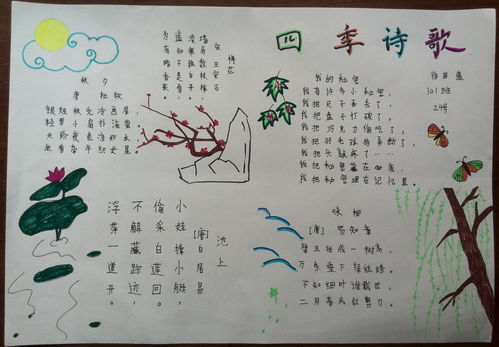 四季诗歌
梅花
宋 王安石
墙角数枝梅,
凌寒独自开。
遥知不是雪,
为有暗香来。
秋夕
唐 杜牧
银烛秋光冷屏,
轻罗小扇扑流萤
天阶夜色凉如水
牵牛织女星
我的秘密
我有许多小秘密,
我把尺子弄丢了,
我把盘子打破了,
我把巧克力偷吃了,
我把羽毛球拍弄断了,
我把头敲疼了……
我把秘密藏在心底,
我把秘密埋在记忆里。
101班
24号
池上
[唐]白居易
小娃撑小艇,
偷采白莲回。
不解藏踪迹,
浮萍一道开。
咏柳
[唐] 贺知章
碧玉妆成一树高,
万条垂下绿丝绦。
不知细叶谁裁出,
二月春风似剪刀。